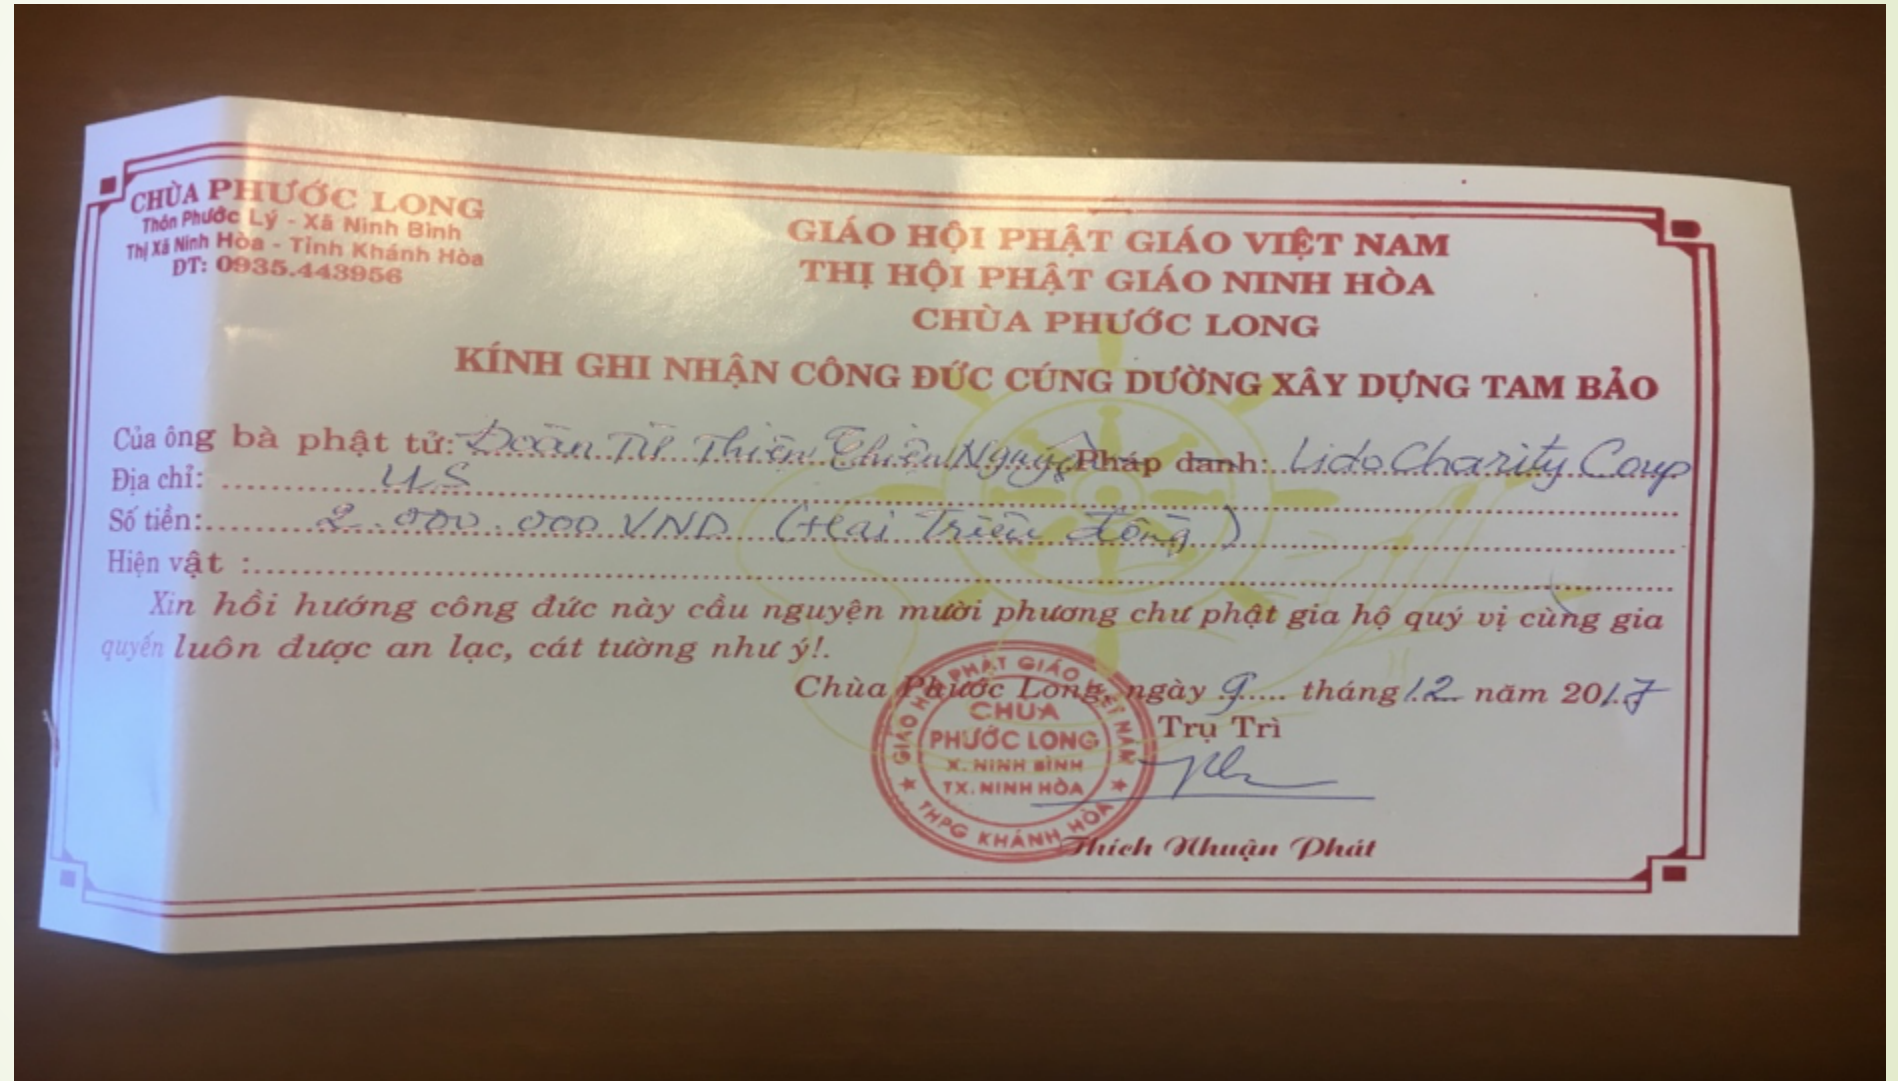 CHÙA PHƯỚC LONG
Thôn Phước Lý - Xã Ninh Bình
Thị Xã Ninh Hòa - Tỉnh Khánh Hòa
ĐT: 0935.443956
GIÁO HỘI PHẬT GIÁO VIỆT NAM
THỊ HỘI PHẬT GIÁO NINH HÒA
CHÙA PHƯỚC LONG
KÍNH GHI NHẬN CÔNG ĐỨC CÚNG DƯỜNG XÂY DỰNG TAM BẢO
Của ông bà phật tử: Đoàn Từ Thiện Thiện Nguyện Pháp danh: Lido Charity
Địa chỉ: US
Số tiền: 2.000.000 VND (Hai Triệu đồng)
Hiện vật :
Xin hồi hướng công đức này cầu nguyện mười phương chư phật gia hộ quý vị cùng gia
quyến luôn được an lạc, cát tường như ý!.
Chùa Phước Long, ngày 9 tháng 12 năm 2017
Trụ Trì
GIÁO HỘI PHẬT GIÁO VIỆT NAM
CHÙA
PHƯỚC LONG
X. NINH BÌNH
TX. NINH HÒA
THPG KHÁNH HÒA
Thích Nhuận Phát